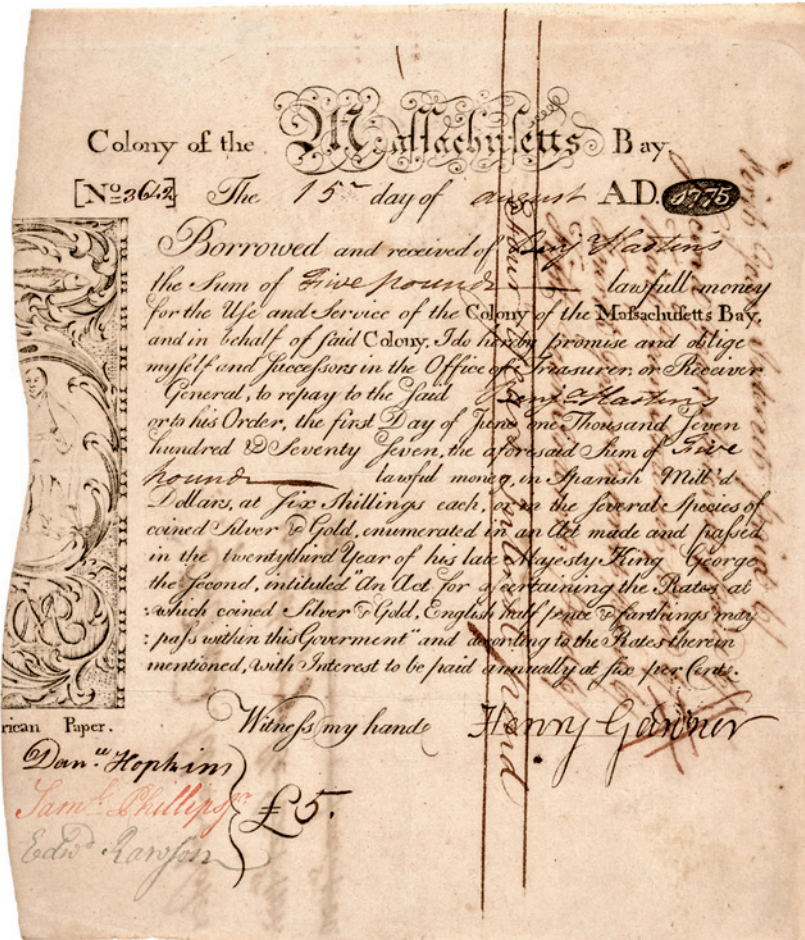 Colony of the Massachusetts Bay.
[No. 3642] The 15th day of august A.D. 1775
Borrowed and received of Benj Hastins
the Sum of Five pounds lawfull money
for the Use and Service of the Colony of the Massachusetts Bay,
and in behalf of said Colony, I do hereby promise and oblige
myself and Successors in the Office of Treasurer, or Receiver
General, to repay to the Said Benj Hastins
or to his Order, the first Day of June one Thousand Seven
hundred & Seventy Seven, the aforesaid Sum of Five
pounds lawful money, in Spanish Mill'd
Dollars, at Six Shillings each, or in the several Species of
coined Silver & Gold, enumerated in an Act made and passed
in the twentythird Year of his late Majesty King George
the Second, intituled "An Act for ascertaining the Rates at
which coined Silver & Gold, English half pence & farthings may
pass within this Goverment" and according to the Rates therein
mentioned, with Interest to be paid annually at six per Cent.
rican Paper.
Witness my hande Henry Gardner
Danll Hopkins
Saml Phillips jr
Edwd Rawson
£5.